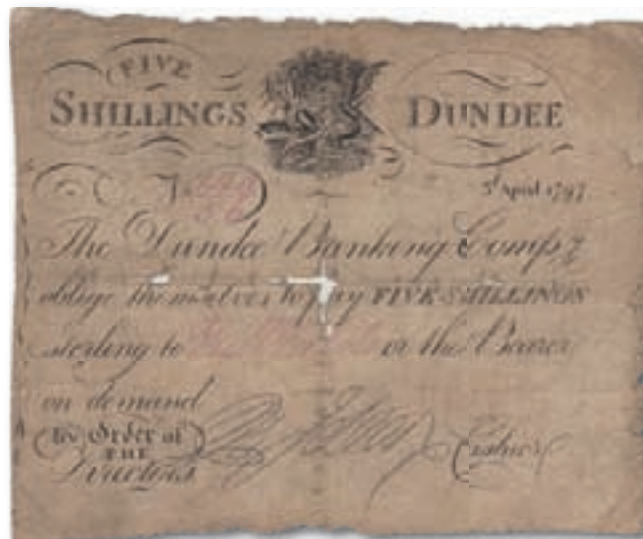 FIVE
SHILLINGS DUNDEE
3d April 1797
The Dundee Banking Compy
oblige themselves to pay FIVE SHILLINGS
sterling to or the Bearer
on demand
By Order of
THE
Directors Cashier